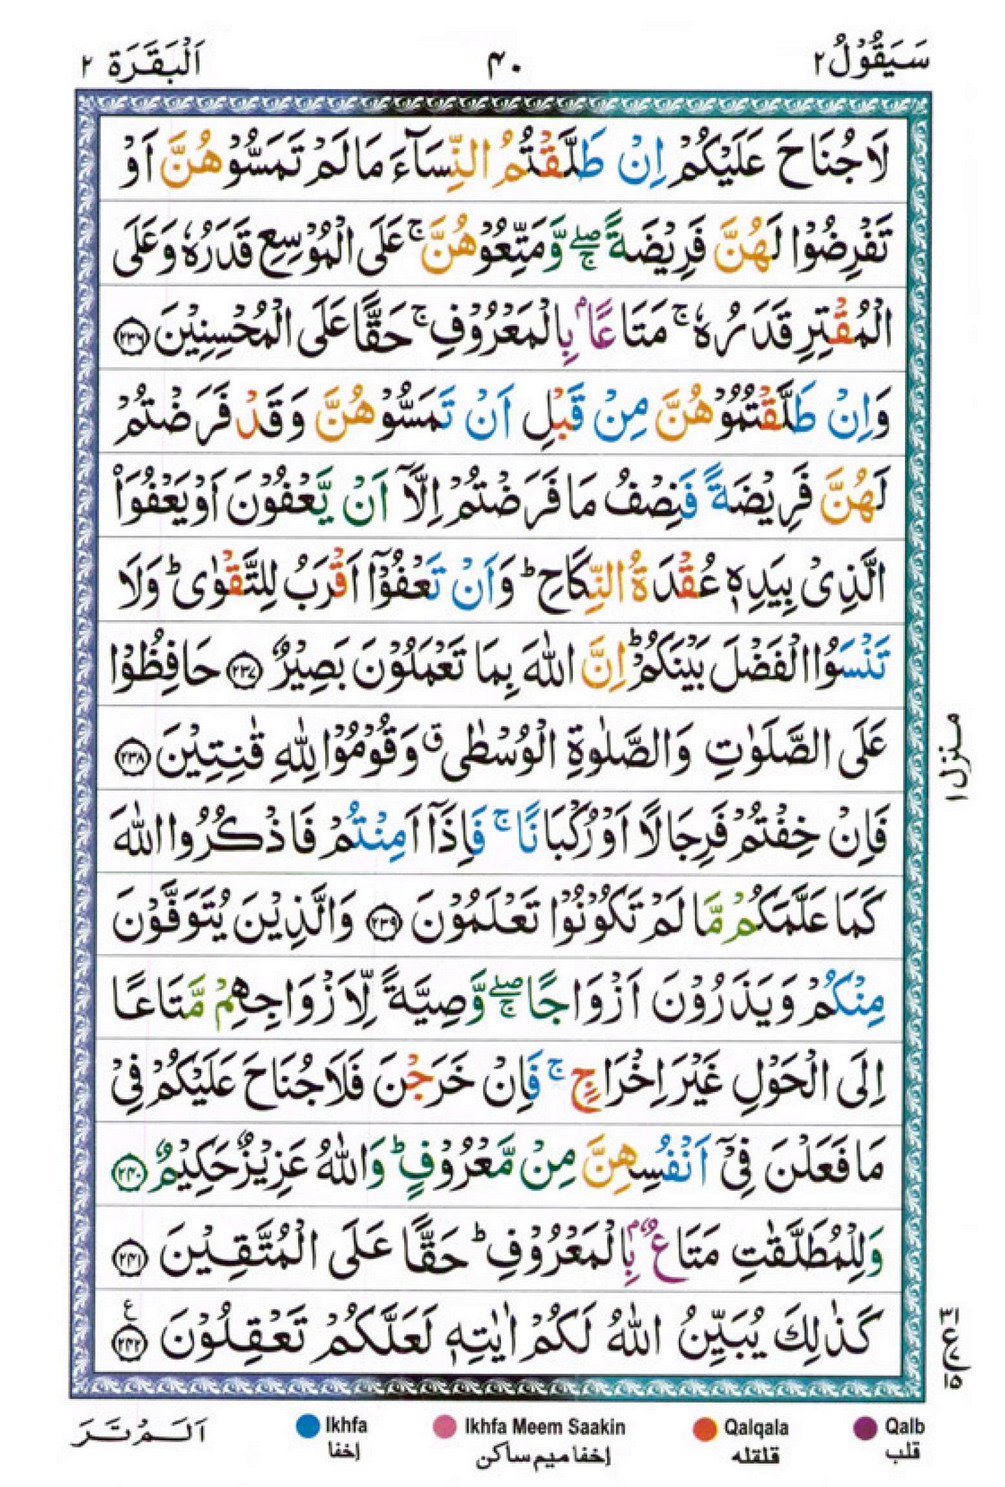 سَيَقُوْلُ ٢
٤٠
اَلْبَقَرَة ٢
لَا جُنَاحَ عَلَيْكُمْ اِنْ طَلَّقْتُمُ النِّسَآءَ مَا لَمْ تَمَسُّوْهُنَّ اَوْ
تَفْرِضُوْا لَهُنَّ فَرِيْضَةً ۖۚ وَّمَتِّعُوْهُنَّ ۚ عَلَى الْمُوْسِعِ قَدَرُهٗ وَعَلَى
الْمُقْتِرِ قَدَرُهٗ ۚ مَتَاعًاۢ بِالْمَعْرُوْفِ ۚ حَقًّا عَلَى الْمُحْسِنِيْنَ ﴿٢٣٦﴾
وَاِنْ طَلَّقْتُمُوْهُنَّ مِنْ قَبْلِ اَنْ تَمَسُّوْهُنَّ وَقَدْ فَرَضْتُمْ
لَهُنَّ فَرِيْضَةً فَنِصْفُ مَا فَرَضْتُمْ اِلَّاۤ اَنْ يَّعْفُوْنَ اَوْ يَعْفُوَا
الَّذِىْ بِيَدِهٖ عُقْدَةُ النِّكَاحِ ؕ وَاَنْ تَعْفُوْۤا اَقْرَبُ لِلتَّقْوٰى ؕ وَلَا
تَنْسَوُا الْفَضْلَ بَيْنَكُمْ ؕ اِنَّ اللّٰهَ بِمَا تَعْمَلُوْنَ بَصِيْرٌ ﴿٢٣٧﴾ حَافِظُوْا
عَلَى الصَّلَوٰتِ وَالصَّلٰوةِ الْوُسْطٰى ۗ وَقُوْمُوْا لِلّٰهِ قٰنِتِيْنَ ﴿٢٣٨﴾
فَاِنْ خِفْتُمْ فَرِجَالًا اَوْ رُكْبَانًا ۚ فَاِذَاۤ اَمِنْتُمْ فَاذْكُرُوا اللّٰهَ
كَمَا عَلَّمَكُمْ مَّا لَمْ تَكُوْنُوْا تَعْلَمُوْنَ ﴿٢٣٩﴾ وَالَّذِيْنَ يُتَوَفَّوْنَ
مِنْكُمْ وَيَذَرُوْنَ اَزْوَاجًا ۖۚ وَّصِيَّةً لِّاَزْوَاجِهِمْ مَّتَاعًا
اِلَى الْحَوْلِ غَيْرَ اِخْرَاجٍ ۚ فَاِنْ خَرَجْنَ فَلَا جُنَاحَ عَلَيْكُمْ فِىْ
مَا فَعَلْنَ فِىْۤ اَنْفُسِهِنَّ مِنْ مَّعْرُوْفٍ ؕ وَاللّٰهُ عَزِيْزٌ حَكِيْمٌ ﴿٢٤٠﴾
وَلِلْمُطَلَّقٰتِ مَتَاعٌۢ بِالْمَعْرُوْفِ ؕ حَقًّا عَلَى الْمُتَّقِيْنَ ﴿٢٤١﴾
كَذٰلِكَ يُبَيِّنُ اللّٰهُ لَكُمْ اٰيٰتِهٖ لَعَلَّكُمْ تَعْقِلُوْنَ ﴿٢٤٢﴾ ع
منزل ١
اَلَمْ تَرَ
Ikhfa
إخفا
Ikhfa Meem Saakin
إخفا ميم ساكن
Qalqala
قلقله
Qalb
قلب